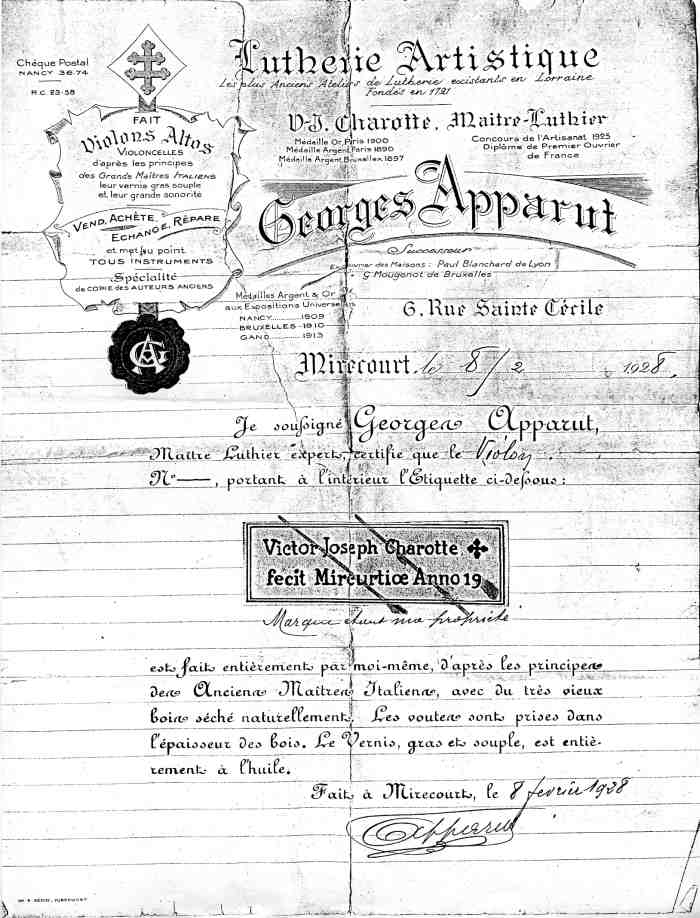 Chéque Postal
NANCY 36-74
R.C 23-58
FAIT
Violons Altos
VIOLONCELLES
d'après les principes
des Grands Maîtres ITALIENS
leur vernis gras souple
et leur grande sonorité
VEND, ACHÈTE,
ECHANGE, RÉPARE
et met au point
TOUS INSTRUMENTS
Spécialité
de COPIE des AUTEURS ANCIENS
GA
Lutherie Artistique
Les plus Anciens Ateliers de Lutherie existants en Lorraine
Fondés en 1721
V-J. Charotte, Maître-Luthier
Médaille Or, Paris 1900
Médaille Argent, Paris 1890
Médaille Argent, Bruxelles 1897
Concours de l'Artisanat 1925
Diplôme de Premier Ouvrier
de France
Georges Apparut
Successeur
des Maisons : Paul Blanchard de Lyon
G Mougenot de Bruxelles
Médailles Argent & Or
aux Expositions Universelles
NANCY 1909
BRUXELLES 1910
GAND 1913
6, Rue Sainte Cécile
Mirecourt, le 8/2 1928.
Je soussigné Georges Apparut,
Maître Luthier expert, certifie que le Violon
No —, portant à l'intérieur l'Etiquette ci-dessous :
Victor-Joseph Charotte
fecit Mircurtiœ Anno 19
Marque étant ma propriété
est fait entièrement par moi-même, d'après les principes
des Anciens Maîtres Italiens, avec du très vieux
bois séché naturellement. Les voutes sont prises dans
l'épaisseur des bois. Le Vernis, gras et souple, est entiè-
rement à l'huile.
Fait à Mirecourt, le 8 février 1928
GApparut